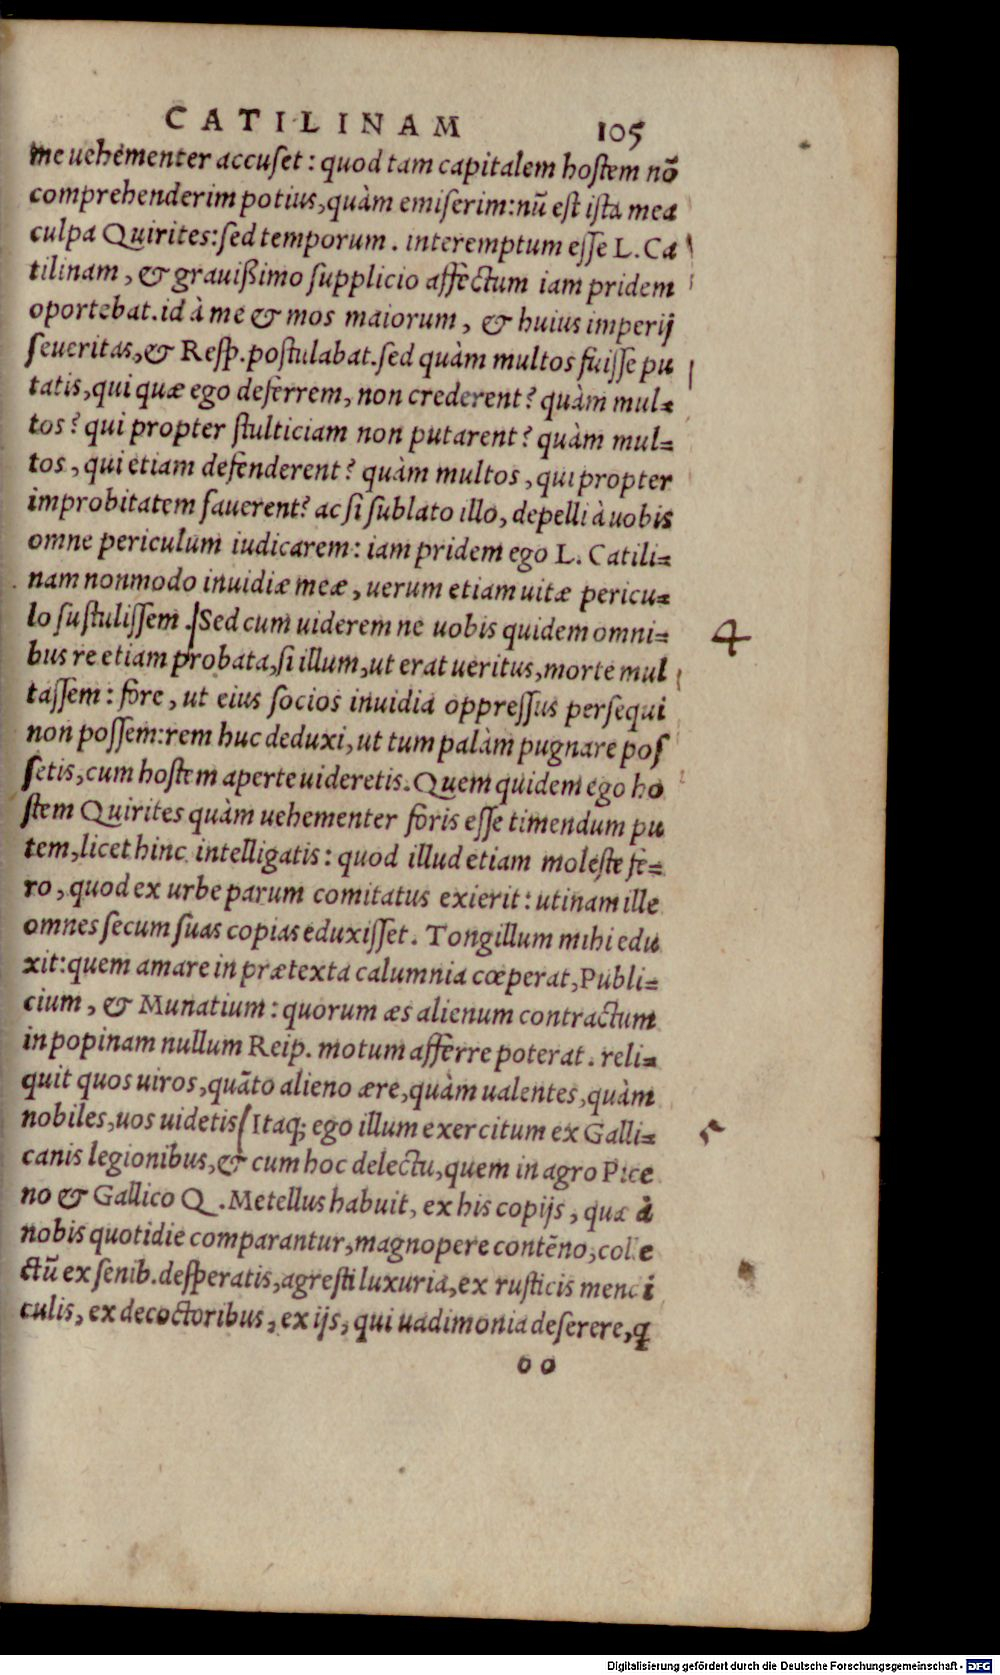 CATILINAM 105
me uehementer accuset: quod tam capitalem hostem nõ
comprehenderim potius, quàm emiserim: nũ est ista mea
culpa Quirites: sed temporum. interemptum esse L. Ca
tilinam, & grauißimo supplicio affectum iam pridem
oportebat. id à me & mos maiorum, & huius imperij
seueritas, & Resp. postulabat. sed quàm multos fuisse pu
tatis, qui quæ ego deferrem, non crederent? quàm mul-
tos? qui propter stulticiam non putarent? quàm mul-
tos, qui etiam defenderent? quàm multos, qui propter
improbitatem fauerent? ac si sublato illo, depelli à uobis
omne periculum iudicarem: iam pridem ego L. Catili-
nam nonmodo inuidiæ meæ, uerum etiam uitæ pericu-
lo sustulissem. Sed cum uiderem ne uobis quidem omni-
4
bus re etiam probata, si illum, ut erat ueritus, morte mul
tassem: fore, ut eius socios inuidia oppressus persequi
non possem: rem huc deduxi, ut tum palàm pugnare pos
setis, cum hostem aperte uideretis. Quem quidem ego ho
stem Quirites quàm uehementer foris esse timendum pu
tem, licet hinc intelligatis: quod illud etiam moleste fe-
ro, quod ex urbe parum comitatus exierit: utinam ille
omnes secum suas copias eduxisset. Tongillum mihi edu
xit: quem amare in prætexta calumnia cœperat, Publi-
cium, & Munatium: quorum æs alienum contractum
in popinam nullum Reip. motum afferre poterat. reli-
quit quos uiros, quãto alieno ære, quàm ualentes, quàm
nobiles, uos uidetis Itaq; ego illum exercitum ex Galli-
5
canis legionibus, & cum hoc delectu, quem in agro Pice
no & Gallico Q. Metellus habuit, ex his copijs, quæ à
nobis quotidie comparantur, magnopere contẽno, colle
ctũ ex senib. desperatis, agresti luxuria, ex rusticis mendi
culis, ex decoctoribus, ex ijs, qui uadimonia deserere, ꝗ
oo
Digitalisierung gefördert durch die Deutsche Forschungsgemeinschaft - DFG